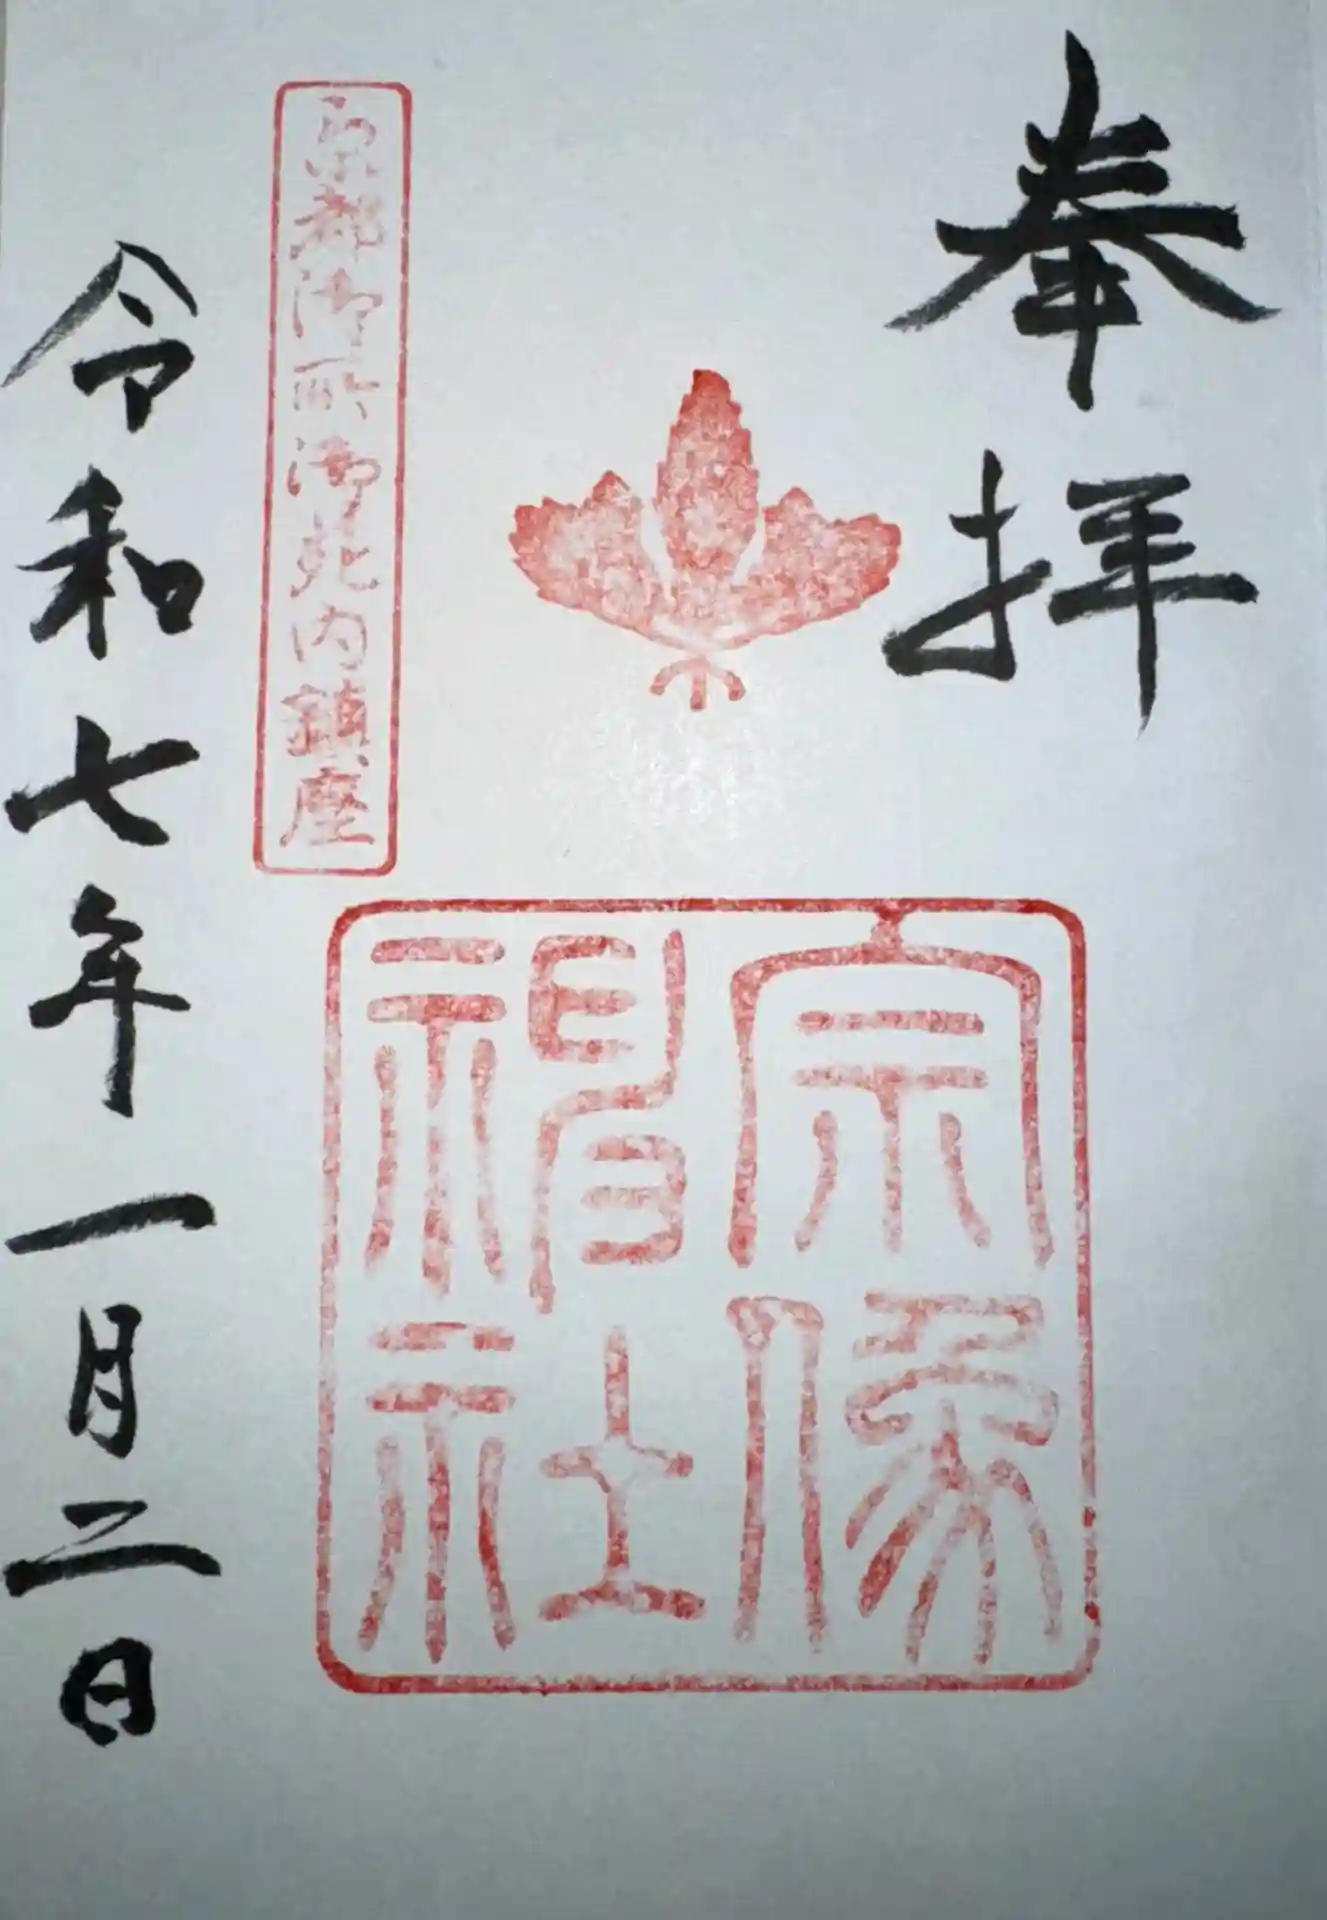 奉拝
宗像
神社
京都御所御苑内鎮座
令和七年一月二日